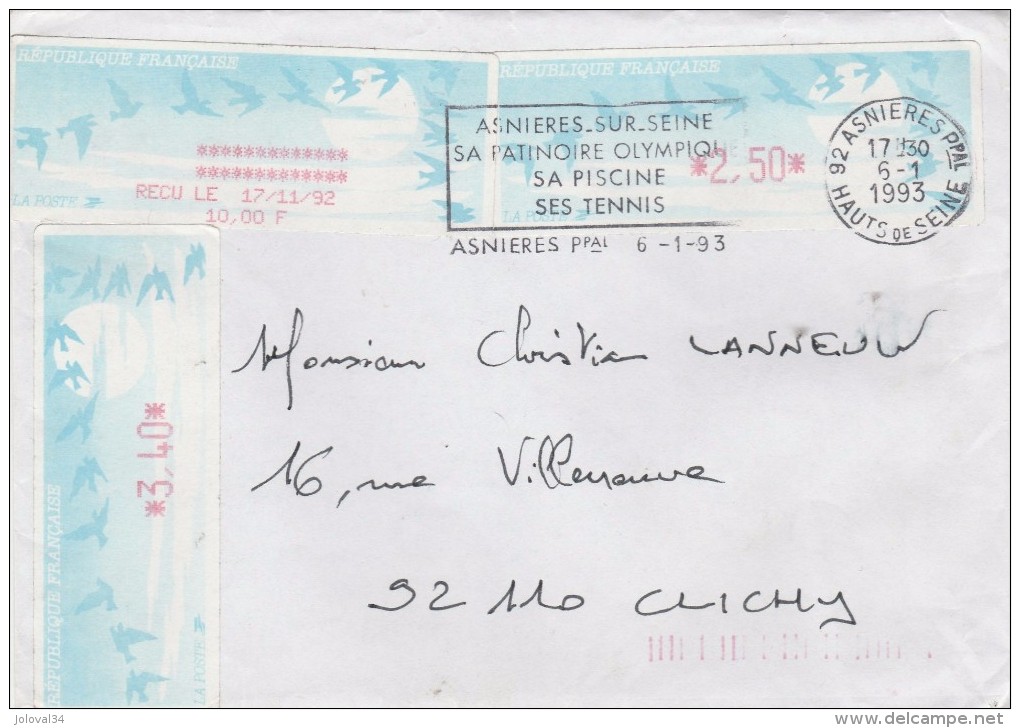 RÉPUBLIQUE FRANÇAISE
************
************
RECU LE 17/11/92
10,00 F
LA POSTE
RÉPUBLIQUE FRANÇAISE
*2,50*
ASNIERES-SUR-SEINE
SA PATINOIRE OLYMPIQUE
SA PISCINE
SES TENNIS
ASNIERES PPAL 6 -1-93
92 ASNIERES PPAL
17H30
6-1
1993
HAUTS DE SEINE
*3,40*
RÉPUBLIQUE FRANÇAISE
LA POSTE
Monsieur Christian LANNEUW
16, rue Villeneuve
92 110 CLICHY
joloval34
delcampe.net